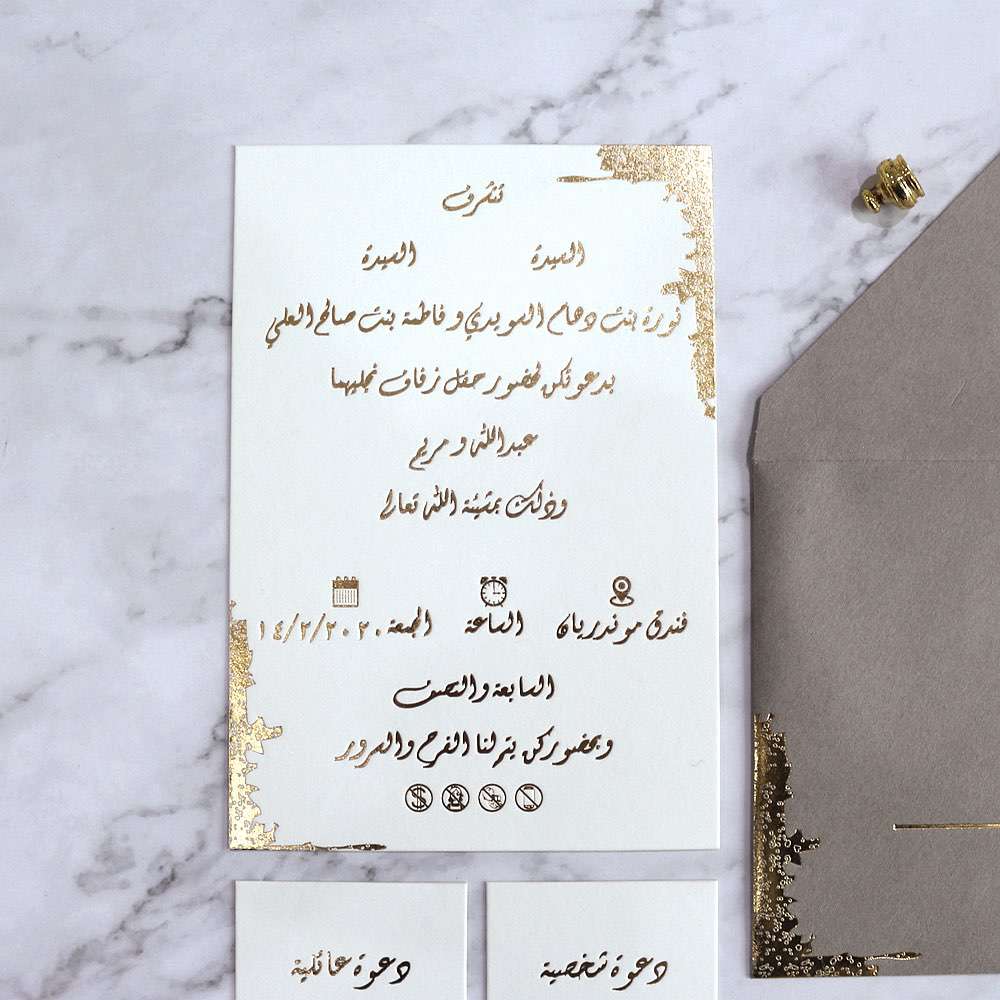 تتشرف
السيدة السيدة
نورة بنت دهام السويدي و فاطمة بنت صالح العلي
بدعوتكن لحضور حفل زفاف نجليهما
عبدالله و مريم
وذلك بمشيئة الله تعالى
فندق موندريان الساعة الجمعة ١٤/٢/٢٠٢٠
السابعة والنصف
وبحضوركن يتم لنا الفرح والسرور
دعوة شخصية
دعوة عائلية